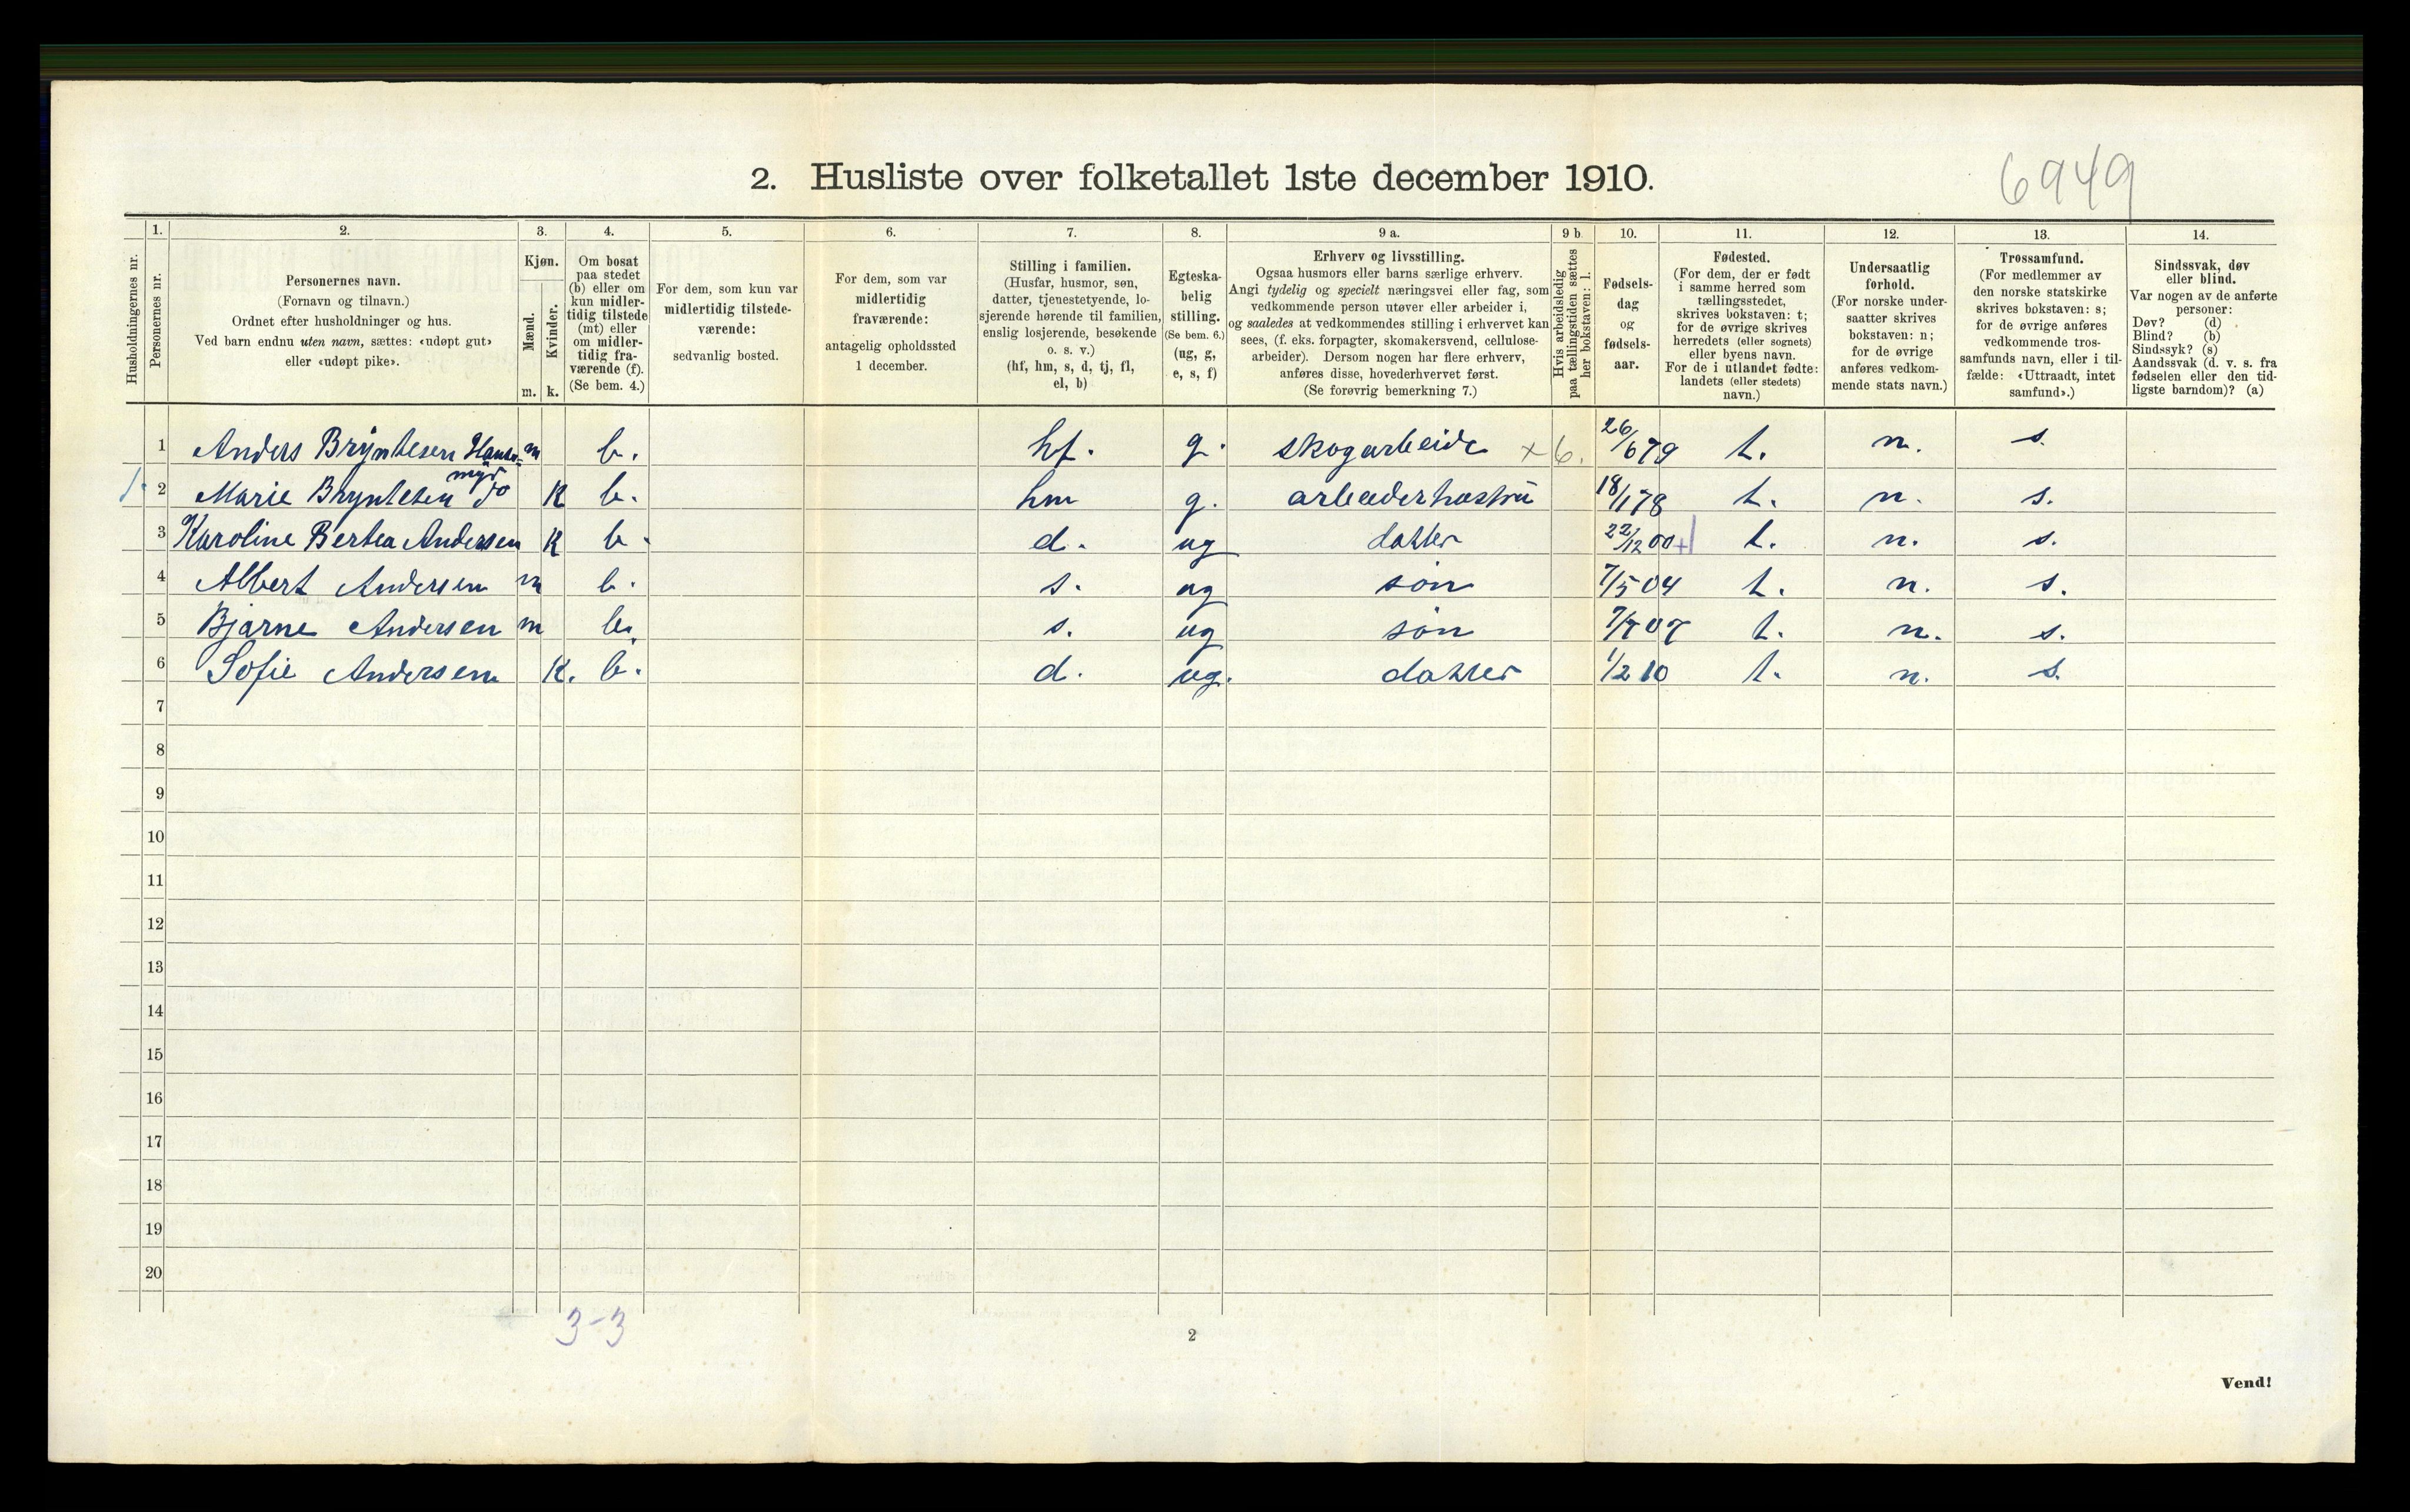 2. Husliste over folketallet 1ste december 1910.
6949
Husholdningernes nr.
1.
Personernes nr.
2.
Personernes navn.
(Fornavn og tilnavn.)
Ordnet efter husholdninger og hus.
Ved barn endnu uten navn, sættes: «udøpt gut»
eller «udøpt pike».
3.
Kjøn.
Mænd.
Kvinder.
m. k.
4.
Om bosat
paa stedet
(b) eller om
kun midler-
tidig tilstede
(mt) eller
om midler-
tidig fra-
værende (f).
(Se bem. 4.)
5.
For dem, som kun var
midlertidig tilstede-
værende:
sedvanlig bosted.
6.
For dem, som var
midlertidig
fraværende:
antagelig opholdssted
1 december.
7.
Stilling i familien.
(Husfar, husmor, søn,
datter, tjenestetyende, lo-
sjerende hørende til familien,
enslig losjerende, besøkende
o. s. v.)
(hf, hm, s, d, tj, fl,
el, b)
8.
Egteska-
belig
stilling.
(Se bem. 6.)
(ug, g,
e, s, f)
9 a.
Erhverv og livsstilling.
Ogsaa husmors eller barns særlige erhverv.
Angi tydelig og specielt næringsvei eller fag, som
vedkommende person utøver eller arbeider i,
og saaledes at vedkommendes stilling i erhvervet kan
sees, (f. eks. forpagter, skomakersvend, cellulose-
arbeider). Dersom nogen har flere erhverv,
anføres disse, hovederhvervet først.
(Se forøvrig bemerkning 7.)
9 b
Hvis arbeidsledig
paa tællingstiden sættes
her bokstaven: l.
10.
Fødsels-
dag
og
fødsels-
aar.
11.
Fødested.
(For dem, der er født
i samme herred som
tællingsstedet,
skrives bokstaven: t;
for de øvrige skrives
herredets (eller sognets)
eller byens navn.
For de i utlandet fødte:
landets (eller stedets)
navn.)
12.
Undersaatlig
forhold.
(For norske under-
saatter skrives
bokstaven: n;
for de øvrige
anføres vedkom-
mende stats navn.)
13.
Trossamfund.
(For medlemmer av
den norske statskirke
skrives bokstaven: s;
for de øvrige anføres
vedkommende tros-
samfunds navn, eller i til-
fælde: «Uttraadt, intet
samfund».)
14.
Sindssvak, døv
eller blind.
Var nogen av de anførte
personer:
Døv? (d)
Blind? (b)
Sindssyk? (s)
Aandssvak (d. v. s. fra
fødselen eller den tid-
ligste barndom)? (a)
1 Anders Bryntesen m b. hf. g. skogarbeide x 6. 26/6 79 t. n. s.
myr
1. 2 Marie Bryntesen do K b. hm g. arbeiderhustru 18/1 78 t. n. s.
3 Karoline Bertea Andersen K b. d. ug datter 22/12 00 + t. n. s.
4 Albert Andersen m b. s. ug søn 7/5 04 t. n. s.
5 Bjarne Andersen m b. s. ug søn 7/7 07 t. n. s.
6 Sofie Andersen K. b. d. ug. datter 1/2 10 t. n. s.
7
8
9
10
11
12
13
14
15
16
17
18
19
20
3-3
2
Vend!